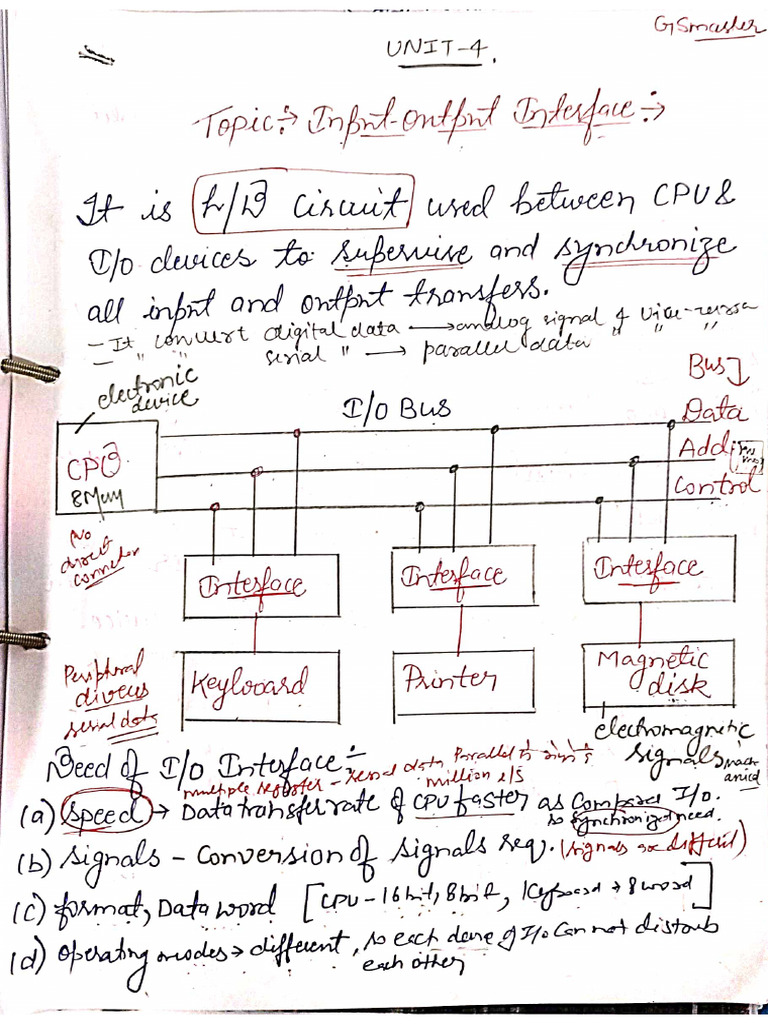 GSmaster
UNIT-4.
Topic:→ Input-Output Interface:→
It is H/W Circuit used between CPU &
I/O devices to supervise and synchronize
all input and output transfers.
- It convert digital data → analog signal & vice-versa
- " " serial " → parallel data " " "
electronic
device
Bus
I/O Bus
Data
CPU
Add
Control
No
direct
connection
Interface
Interface
Interface
Peripheral
serial data
Keyboard
Printer
Magnetic
disk
electromagnetic
signals
Need of I/O Interface:-
multiple register - serial data Parallel
million
(a) speed → Data transfer rate of CPU faster as Compared I/O.
so synchronized need.
(b) Signals - Conversion of signals req. (signals are different)
(c) format, Data word [CPU - 16 bit, 8 bit, Keyboard → 8 word]
(d) Operating modes → different, so each device of I/O Can not disturb
each other